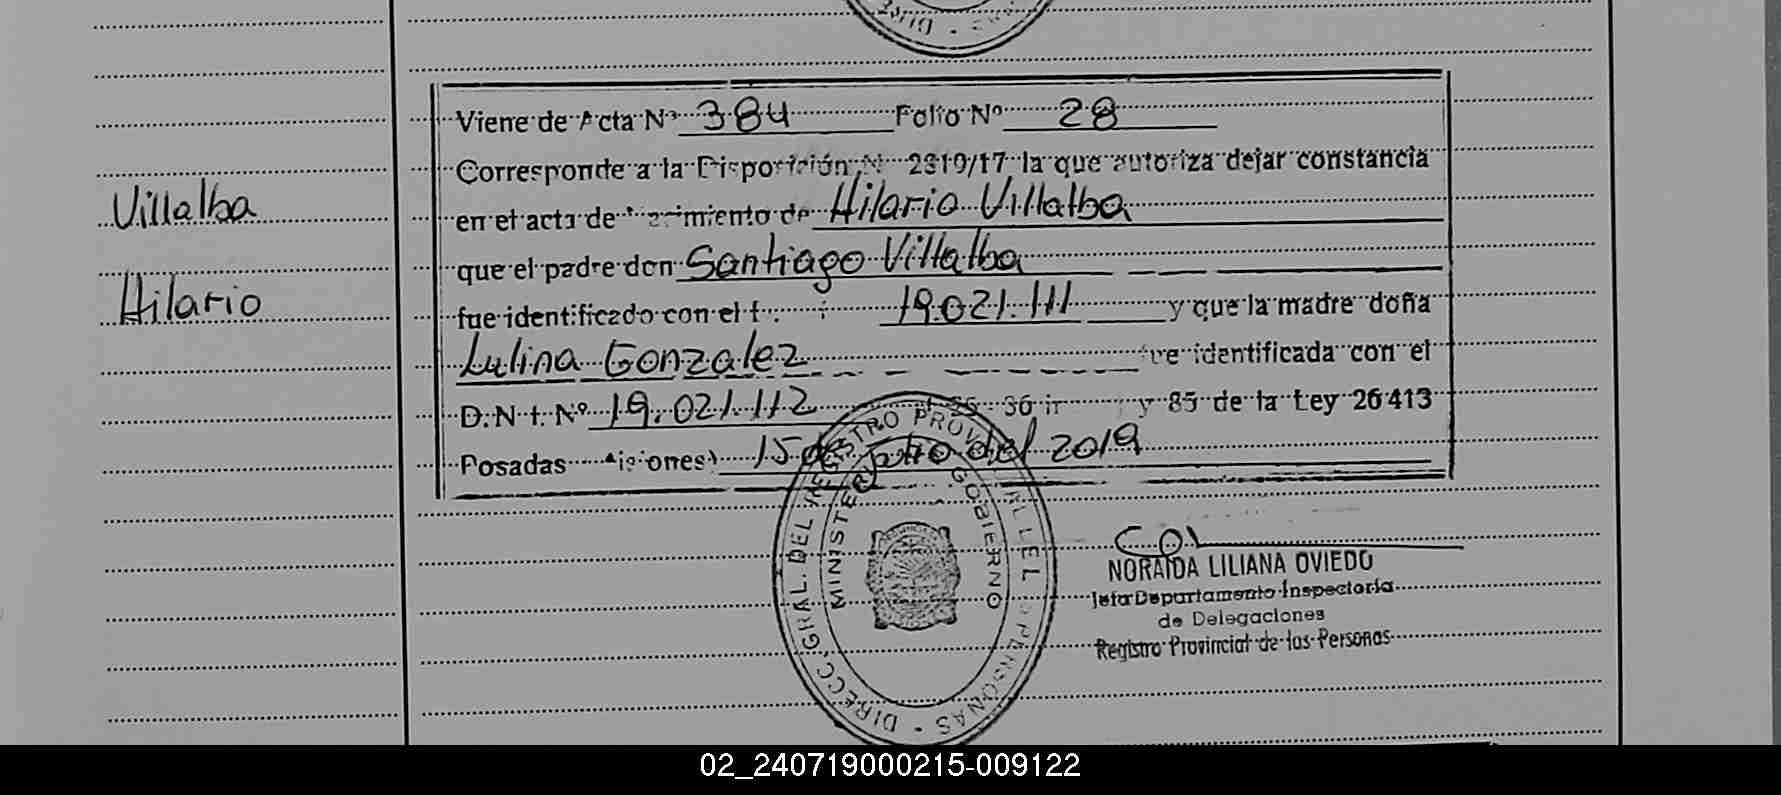 Viene de Acta Nº 384 Folio Nº 28
Corresponde a la Disposición Nº 2319/17 la que autoriza dejar constancia
Villalba
en el acta de nacimiento de Hilario Villalba
que el padre don Santiago Villalba
Hilario
fue identificado con el 19.021.111 y que la madre doña
Lulina Gonzalez fue identificada con el
D.N.I. Nº 19.021.112 35 - 36 y 85 de la Ley 26413
Posadas Misiones) 15 de julio del 2019
DIRECC. GRAL. DEL REGISTRO PROVINCIAL DE LAS PERSONAS -
MINISTERIO GOBIERNO
NORAIDA LILIANA OVIEDO
Jefa Departamento Inspectoría
de Delegaciones
Registro Provincial de las Personas
02_240719000215-009122